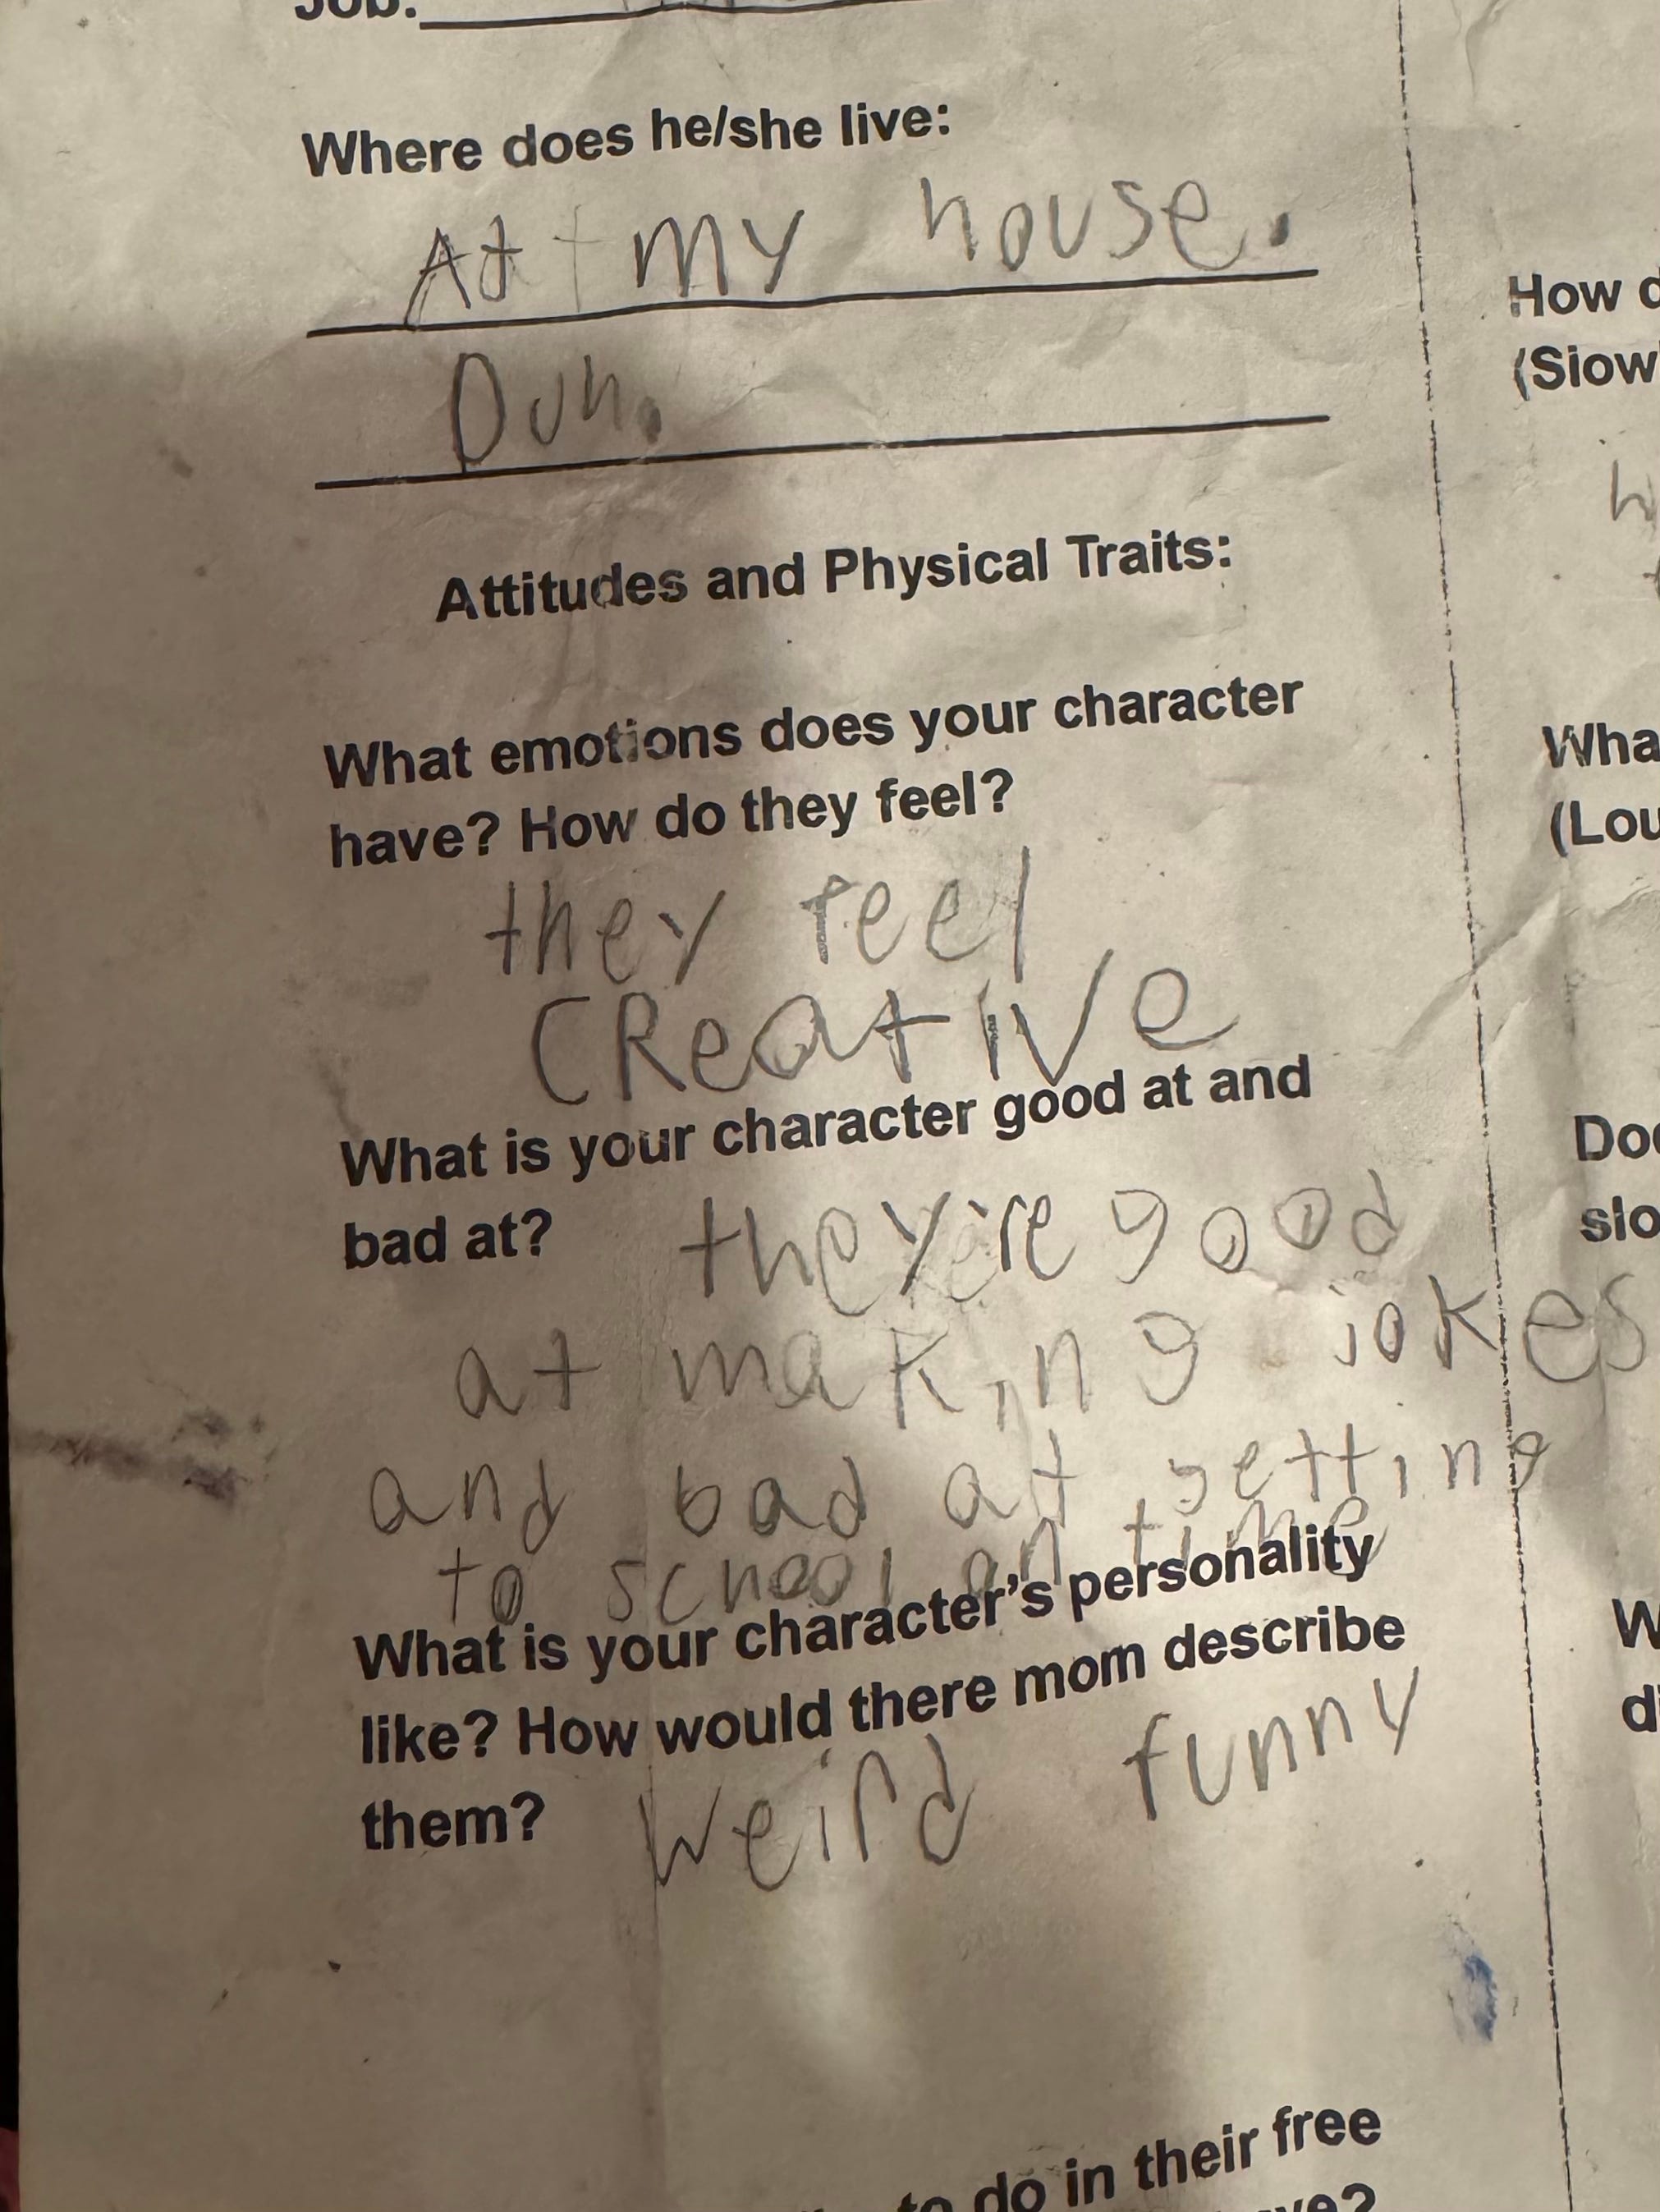 Job:
Where does he/she live:
At my house.
Duh.
Attitudes and Physical Traits:
What emotions does your character
have? How do they feel?
they feel
CReative
What is your character good at and
bad at? they're good
at making jokes
and bad at getting
to school on time
What is your character's personality
like? How would there mom describe
them? Weird funny
to do in their free
How d
(Slow
Wha
(Lou
Do
slo
W
d